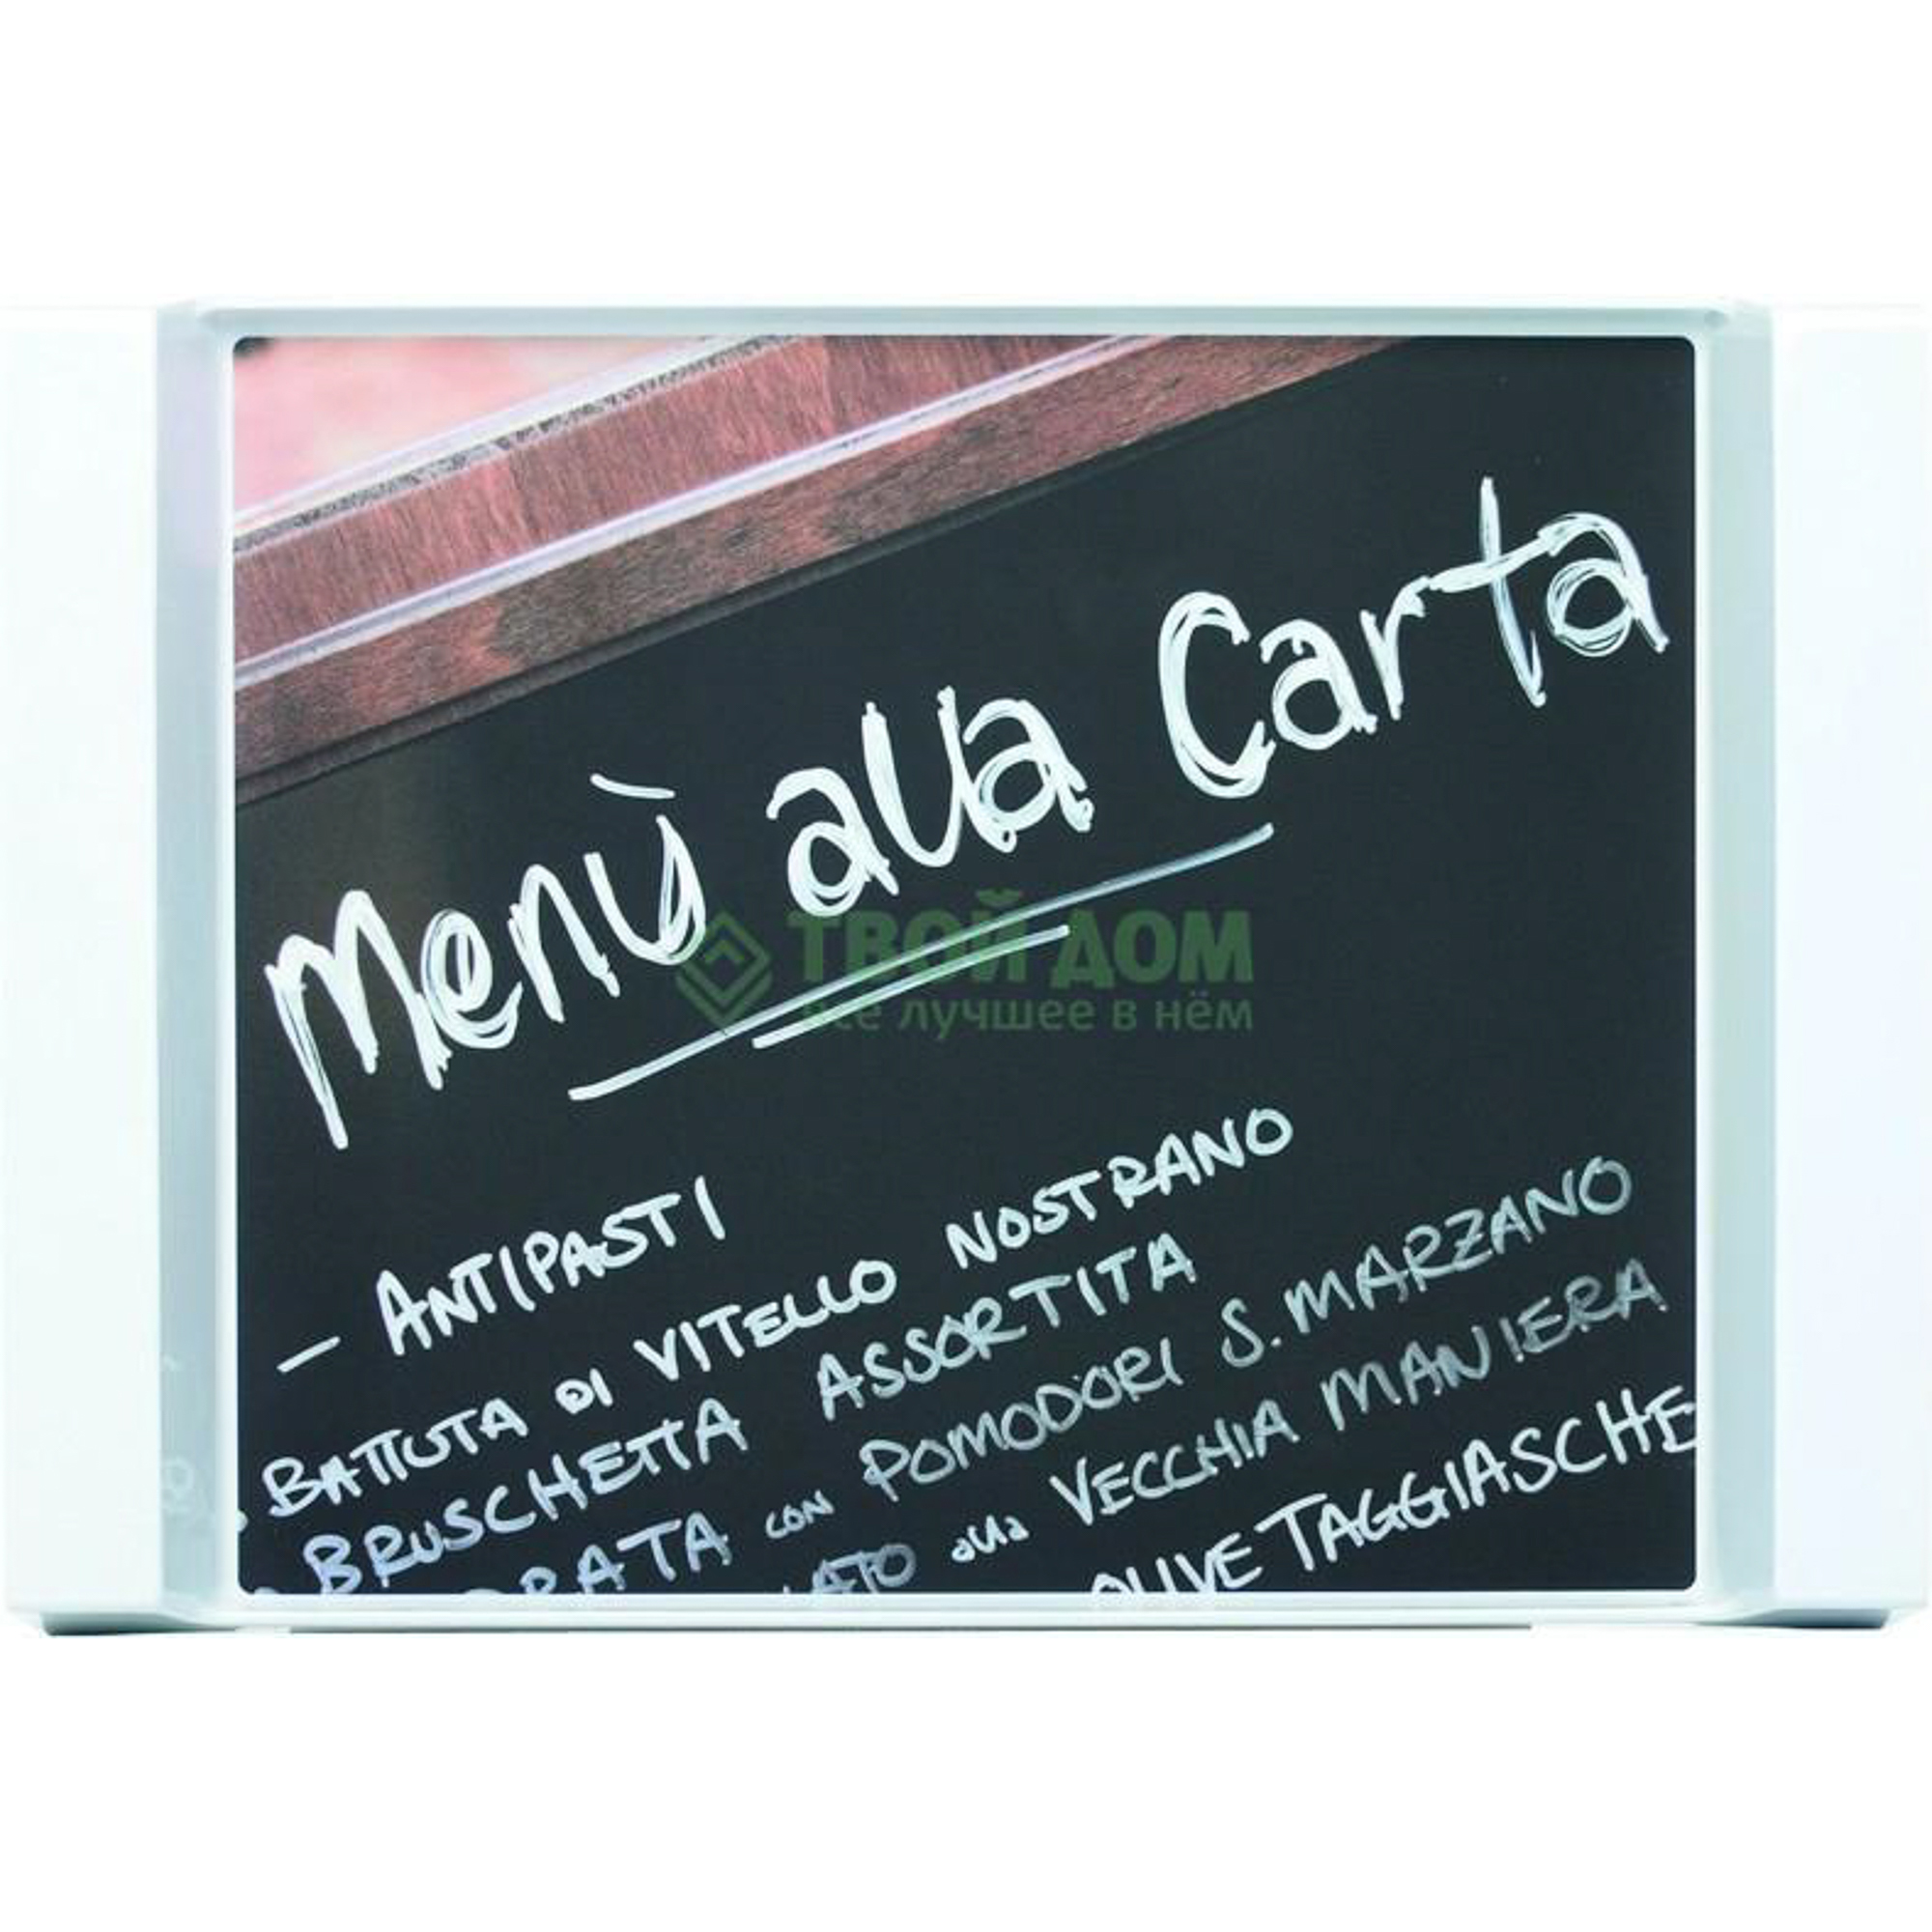 Menù alla Carta
ТВОЙ ДОМ
всё лучшее в нём
- ANTIPASTI
BATTUTA DI VITELLO NOSTRANO
BRUSCHETTA ASSORTITA
CON POMODORI S. MARZANO
alla VECCHIA MANIERA
OLIVE TAGGIASCHE